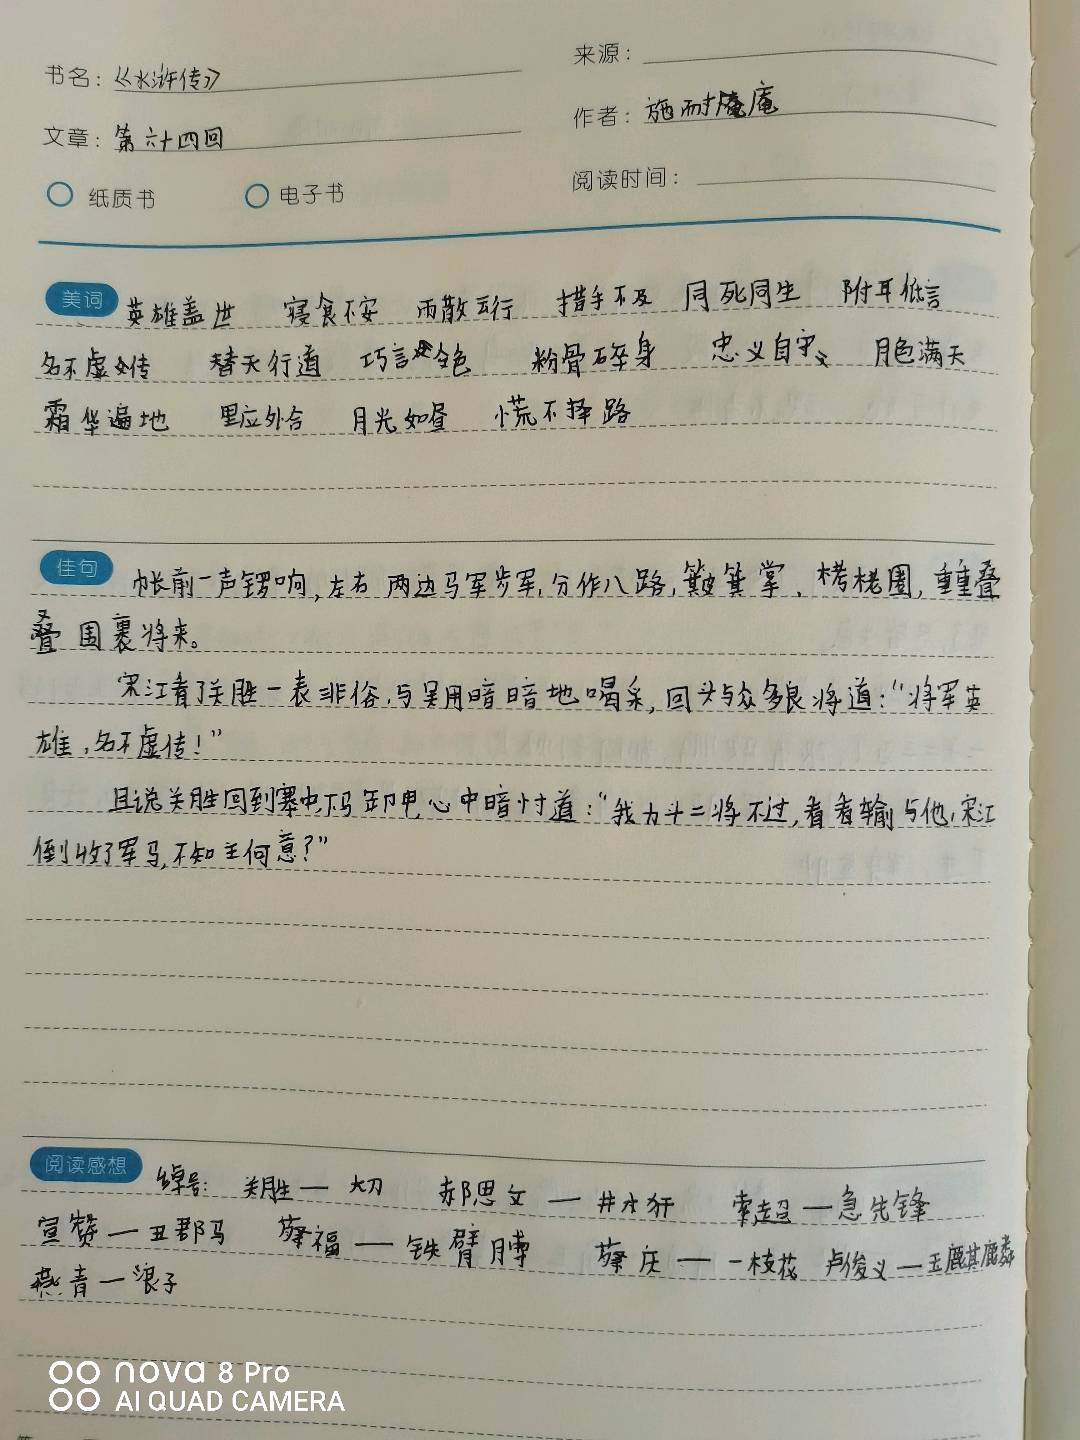 书名：《水浒传》 来源：
文章：第六十四回 作者：施耐庵
纸质书 电子书 阅读时间：
美词 英雄盖世 寝食不安 雨散云行 措手不及 同死同生 附耳低言
名不虚传 替天行道 巧言令色 粉骨碎身 忠义自守 月色满天
霜华遍地 里应外合 月光如昼 慌不择路
佳句 帐前一声锣响,左右两边马军步军,分作八路,簸箕掌、栲栳圈,重重叠
叠围裹将来。
宋江看了关胜一表非俗,与吴用暗暗地喝采,回头与众多良将道:“将军英
雄,名不虚传!”
且说关胜回到寨中,下马卸甲,心中暗忖道:“我力斗二将不过,看看输与他,宋江
倒收了军马,不知主何意?”
阅读感想 绰号: 关胜一大刀 郝思文一井木犴 索超一急先锋
宣赞一丑郡马 蔡福一铁臂膊 蔡庆一一枝花 卢俊义一玉麒麟
燕青一浪子
nova 8 Pro
AI QUAD CAMERA